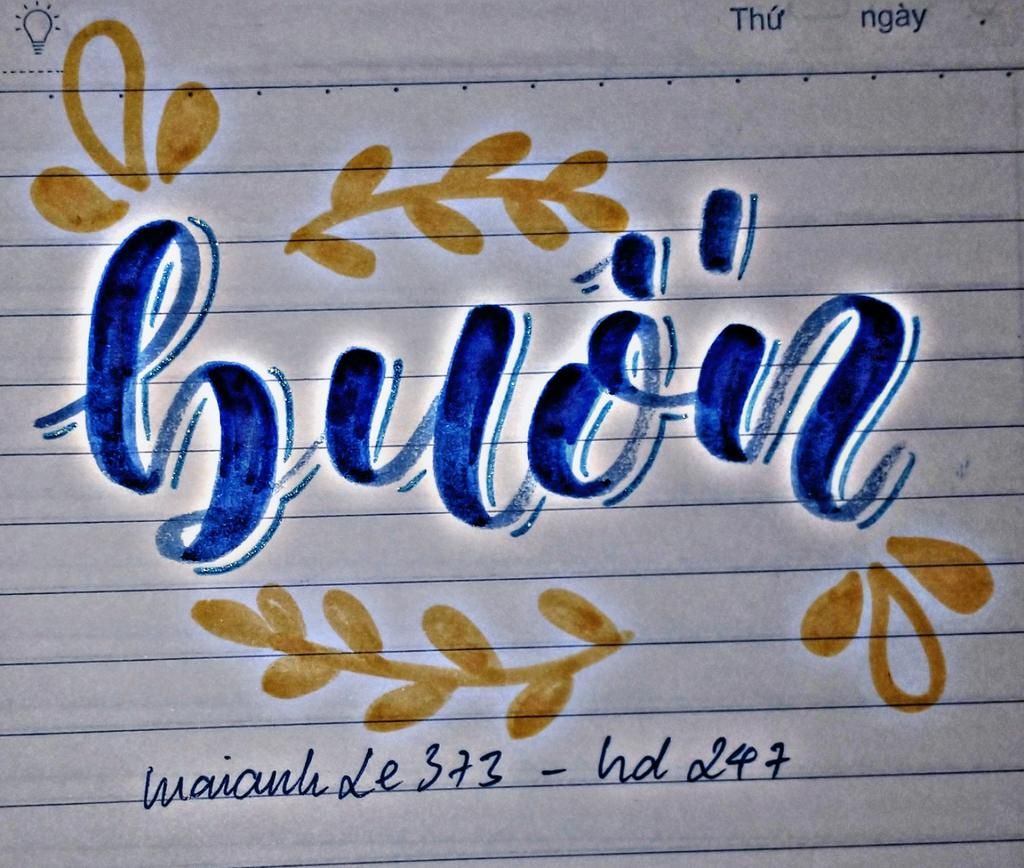 Thứ ngày
buồn
maianh Le 373 - hd 247